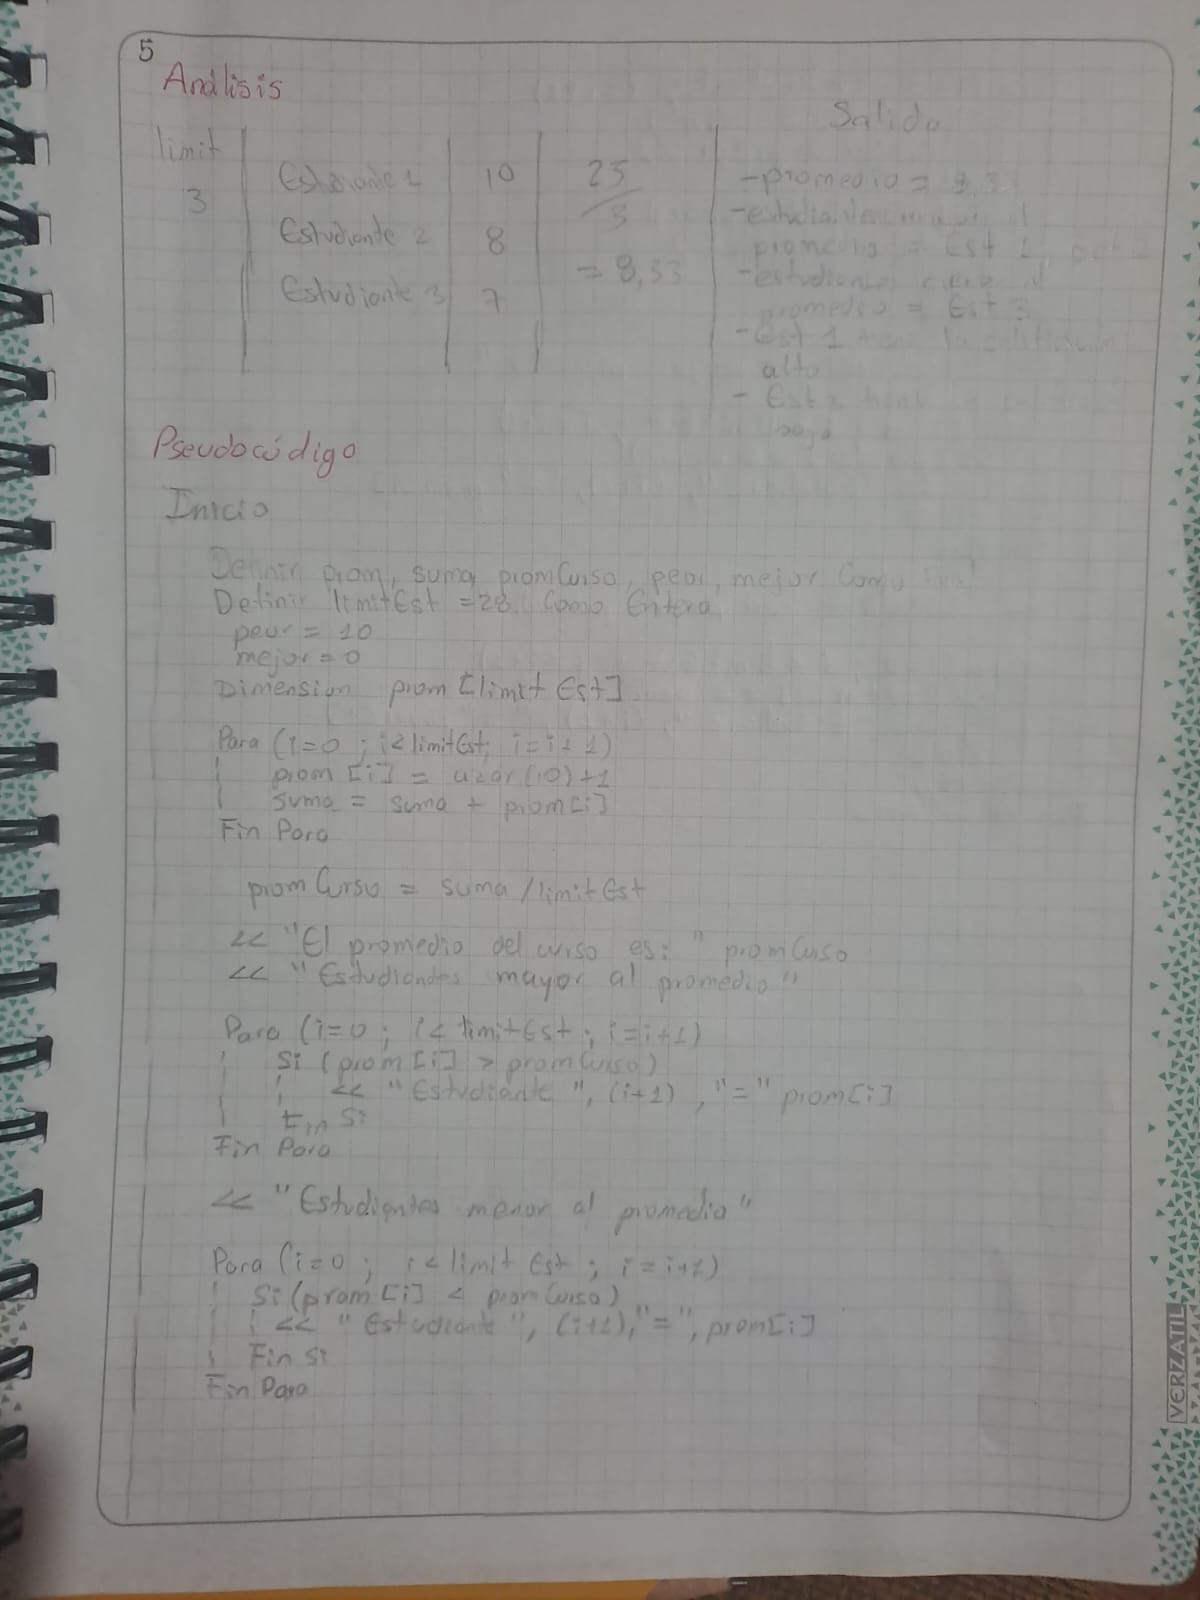 5
Análisis
Salida
limit
3
Estudiante 1 10
Estudiante 2 8
Estudiante 3 7
25
3
= 8,33
- promedio =
- estudiantes al
promedio = Est 1,
- estudiantes
promedio = Est 3
- Est 1
alto
- Est 3
bajo
Pseudocódigo
Inicio
Definir prom, suma, promCurso, peor, mejor Como
Definir limitEst = 28 Como Entero
peor = 10
mejor = 0
Dimension prom [limitEst]
Para (i=0 ; i<limitEst; i=i+1)
prom [i] = azar(10)+1
suma = suma + prom[i]
Fin Para
promCurso = suma / limitEst
<< "El promedio del curso es: " promCurso
<< "Estudiantes mayor al promedio"
Para (i=0 ; i< limitEst ; i=i+1)
Si (prom [i] > promCurso)
<< "Estudiante ", (i+1) , "=" prom[i]
Fin Si
Fin Para
<< "Estudiantes menor al promedio"
Para (i=0 ; i < limit Est ; i = i+1)
Si (prom [i] < promCurso)
<< "Estudiante ", (i+1), "=", prom[i]
Fin Si
Fin Para
VERZATIL